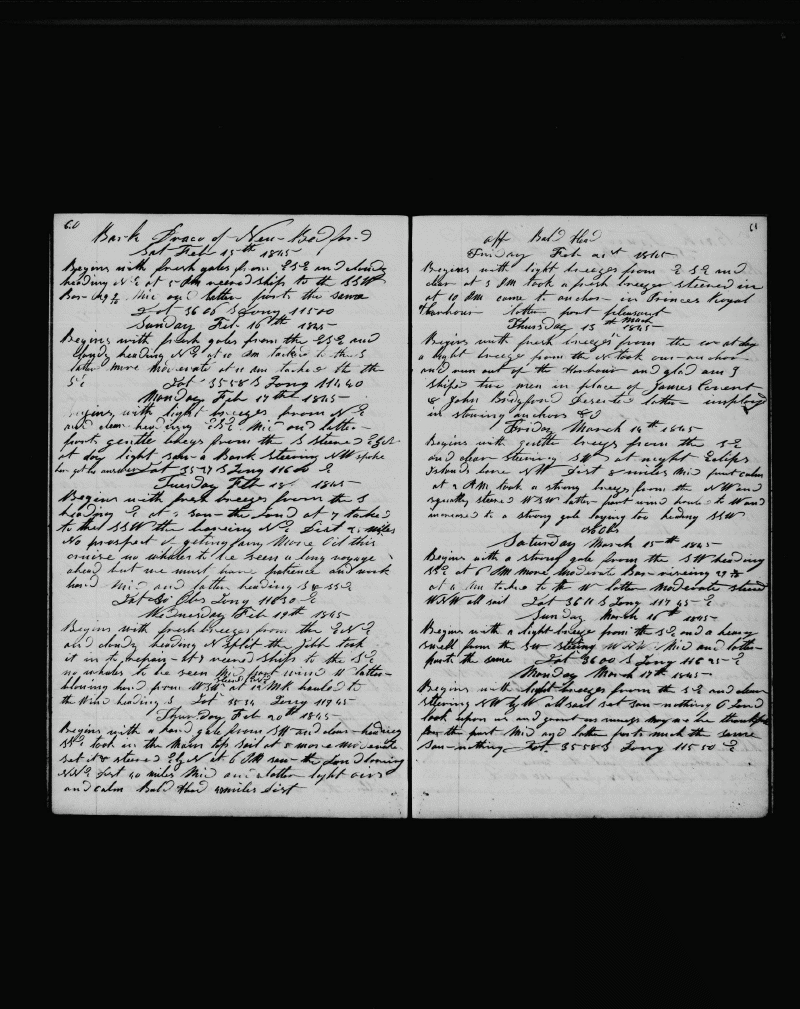 60
Bark Draco of New-Bedford
Sat Feb 15th 1845
Begins with fresh gales from ESE and cloudy
heading NE at 5 PM weend ships to the SSW
Bar 29 Mid and latter parts the same
Lat 3606 S Long 11500
Sunday Feb 16th 1845
Begins with fresh gales from the ESE and
cloudy heading NE at 10 AM tacked to the S
latter more moderate at 11 AM tacked to the
SE Lat 3558 S Long 11440
Monday Feb 17th 1845
Begins with light breezes from NE
and clear heading ESE Mid and latter
parts gentle breezes from the S steered
at day light saw a Bark steering NW spoke
her got no answer Lat 3527 S Long 11606 E
Tuesday Feb 18 1845
Begins with fresh breezes from the S
heading E at saw the Land at 7 tacked
to the SSW the bearing NE Dist miles
No prospect of getting any More Oil this
cruise no whales to be seen a long voyage
ahead but we must have patience and work
hard Mid and latter heading S & SSE
Lat No Obs Long 11630 E
Wednesday Feb 19th 1845
Begins with fresh breezes from the ENE
and cloudy heading N split the jibb took
it in to repair at weend ships to the SE
no whales to be seen Mid part wind latter
blowing hard from WSW at 12 MK hauled to
the Wind heading S Lat 3534 Long 11945
Thursday Feb 20th 1845
Begins with a hard gale from SW and clear heading
SSE took in the Main top sail at 5 more moderate
set it & steered EbyN at 6 PM saw the Land bearing
NNE Dist 40 miles Mid and latter light airs
and calm Bald Head miles Dist
61
off Bald Head
Friday Feb 21st 1845
Begins with light breezes from ESE and
clear at 3 PM took a fresh breeze steered in
at 10 PM came to anchor in Princes Royal
Harbour latter part pleasant
Thursday 13th March 1845
Begins with fresh breezes from the at day
a light breeze from the N took our anchor
and run out of the Harbour and glad am I
Shiped two men in place of James
& John Bridgford Deserted latter employed
in stowing anchors &c
Friday March 14th 1845
Begins with gentle breezes from the SE
and clear steering SW at night Eclips
Islands bore NW Dist 8 miles Mid part calm
at 2 AM took a strong breeze from the NW and
squally steered WSW latter part wind hauled to W and
increased to a strong gale laying too heding SSW
No Obs
Saturday March 15th 1845
Begins with a strong gale from the SW heading
SSE at 6 PM more Moderate Bar riseing 29
at AM tacked to the W latter Moderate steered
WNW all sail Lat 3611 S Long 11745 E
Sunday March 16th 1845
Begins with a light breeze from the SE and a heavy
swell from the SW steering WNW Mid and latter
parts the same Lat 3600 S Long 11625 E
Monday March 17th 1845
Begins with light breezes from the SE and clear
steering NW by W all sail set saw nothing O Lord
look upon us and grant us may we be thankful
for the past Mid and latter parts much the same
saw nothing Lat 3558 S Long 11550 E